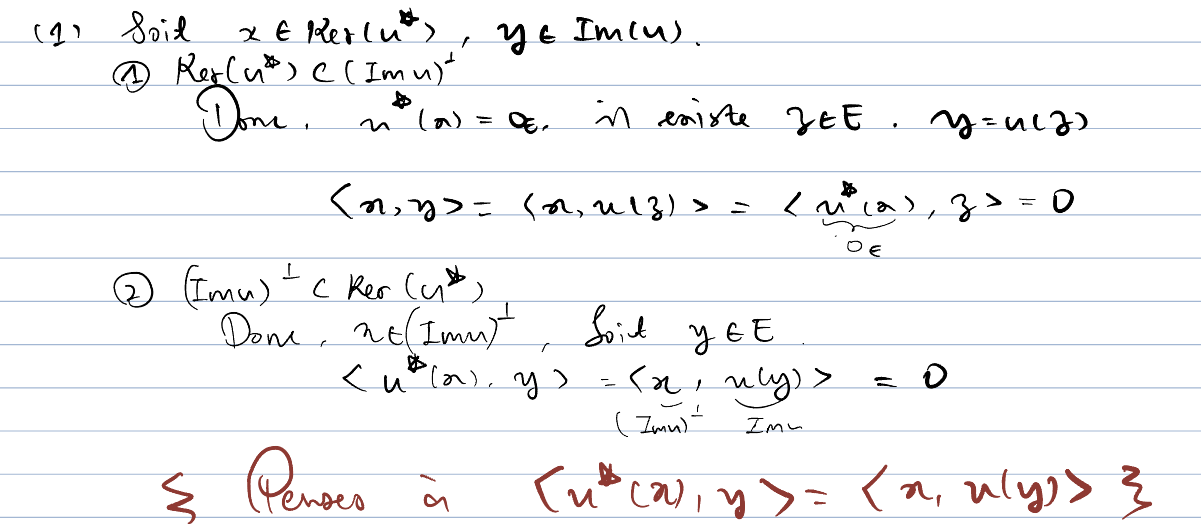 (1) Soit x ∈ Ker(u*), y ∈ Im(u).
① Ker(u*) ⊂ (Im u)^⊥
Donc, u*(x) = 0_E, il existe z ∈ E. y = u(z)
<x, y> = <x, u(z)> = <u*(x), z> = 0
0_E
② (Im u)^⊥ ⊂ Ker(u*)
Donc, x ∈ (Im u)^⊥, Soit y ∈ E.
<u*(x), y> = <x, u(y)> = 0
(Im u)^⊥ Im u
{ Penses à <u*(x), y> = <x, u(y)> }